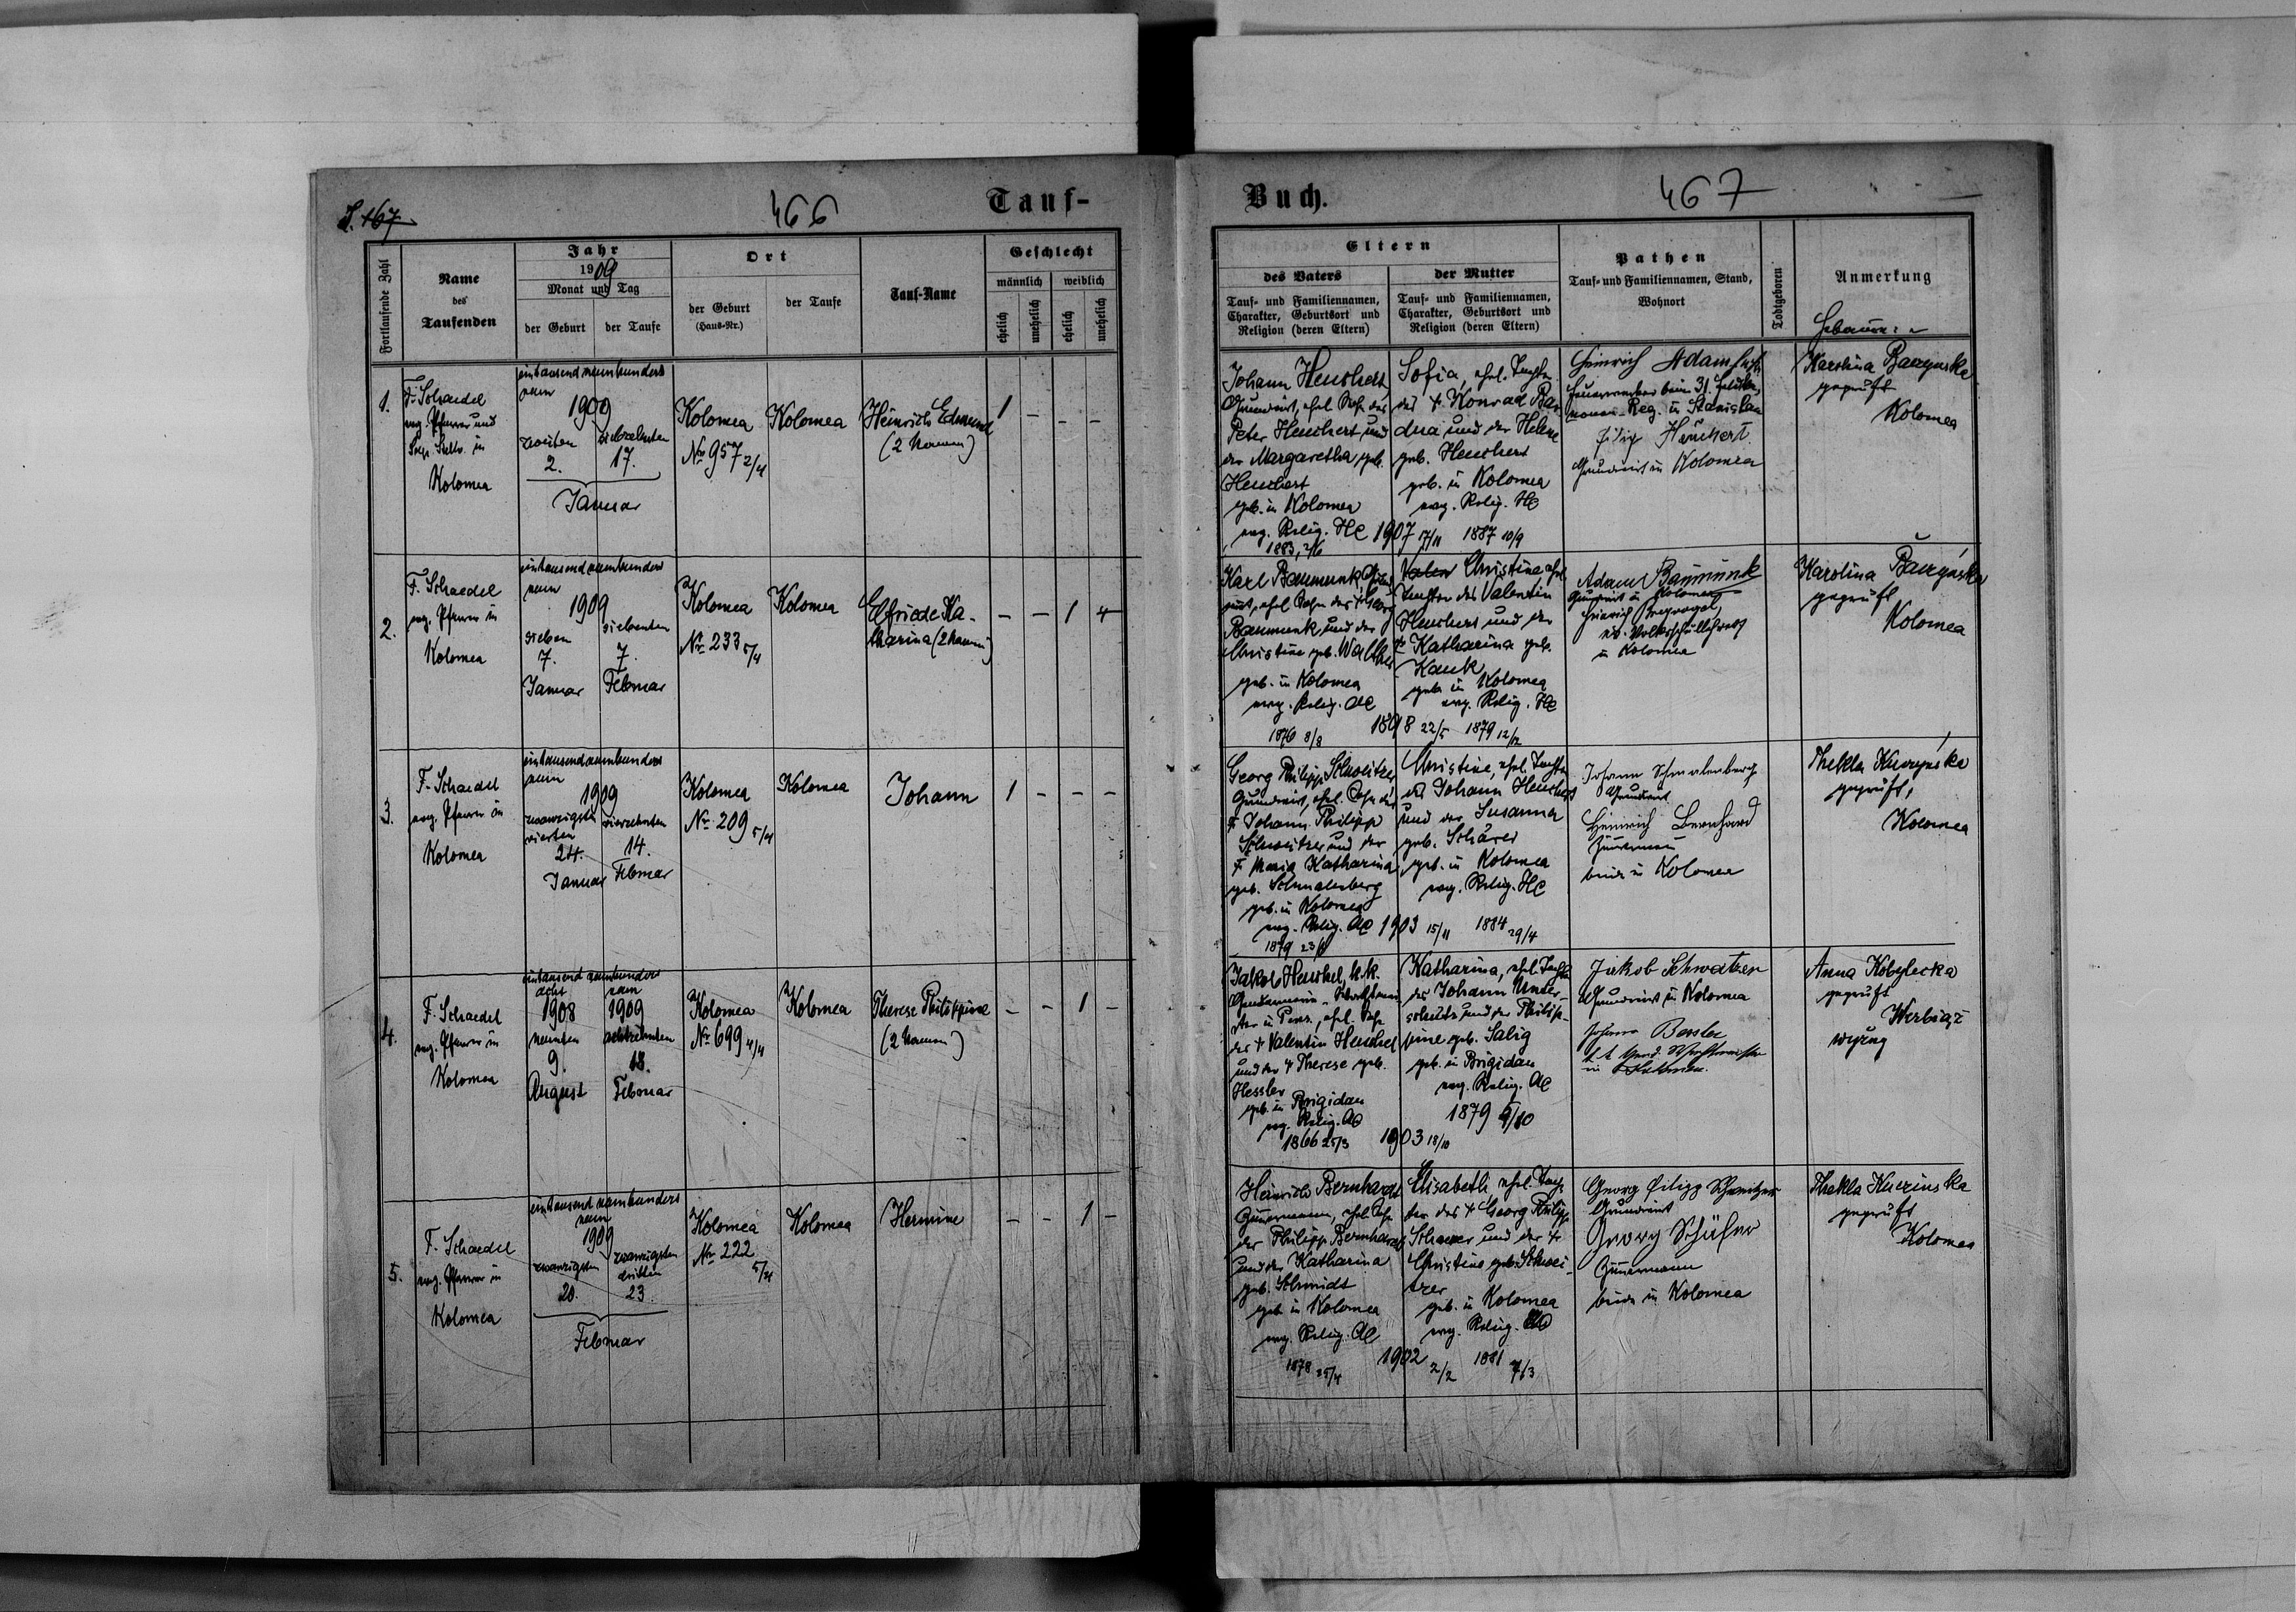 S. 167
466
Tauf-
Fortlaufende Zahl
Name
des
Taufenden
Jahr
1909
Monat und Tag
der Geburt
der Taufe
Ort
der Geburt
(Haus-Nr.)
der Taufe
Tauf-Name
Geschlecht
männlich
weiblich
ehelich
unehelich
ehelich
unehelich
1.
F. Schaedel
evg. Pfarrer und
in
Kolomea
eintausend neunhundert
neun
1909
zweiten
siebzehnten
2.
17.
Januar
Kolomea
No 957 2/4
Kolomea
Heinrich Edmund
(2 Namen)
1 - - -
2.
F. Schaedel
evg. Pfarrer in
Kolomea
eintausend neunhundert
neun
1909
sieben
siebenten
7.
7.
Januar
Februar
Kolomea
Nr. 233 5/4
Kolomea
Elfriede Ka-
tharina (2 Namen)
- - 1 +
3.
F. Schaedel
evg. Pfarrer in
Kolomea
eintausend neunhundert
neun
1909
zwanzigsten
vierzehnten
vierten
24.
14.
Januar
Februar
Kolomea
Nr. 209 5/4
Kolomea
Johann
1 - - -
4.
F. Schaedel
evg. Pfarrer in
Kolomea
eintausend neunhundert
acht
neun
1908
1909
neunten
achtzehnten
9.
18.
August
Februar
Kolomea
Nr. 699 4/4
Kolomea
Therese Philippine
(2 Namen)
- - 1 -
5.
F. Schaedel
evg. Pfarrer in
Kolomea
eintausend neunhundert
neun
1909
zwanzigsten
zwanzigsten
dritten
20.
23.
Februar
Kolomea
Nr. 222
5/4
Kolomea
Hermine
- - 1 -
Buch.
467
Eltern
des Vaters
Tauf- und Familiennamen,
Charakter, Geburtsort und
Religion (deren Eltern)
der Mutter
Tauf- und Familiennamen,
Charakter, Geburtsort und
Religion (deren Eltern)
Pathen
Tauf- und Familiennamen, Stand,
Wohnort
Todtgeboren
Anmerkung
Hebamme:
Johann Heuchert
Grundwirt, ehel. Sohn des
Peter Heuchert und
der Margaretha, geb.
Heuchert
geb. in Kolomea
evg. Relig. HC
1883, 2/6
1907 17/11
Sofia, ehel. Tochter
des † Konrad Ba-
dna und der Helene
geb. Heuchert
geb. in Kolomea
evg. Relig. HC
1887 10/9
Heinrich
beim 31.
Reg. in Stanislau
Filip Heuchert
Grundwirt in Kolomea
Karolina Baczynska
geprüft
Kolomea
Karl Baumunk
ehel. Sohn des † Georg
Baumunk und der
Christine geb. Walther
geb. in Kolomea
evg. Relig. AC
1876 8/8
1898 22/5
Christine ehel.
Tochter des Valentin
Heuchert und der
† Katharina geb.
Kauk
geb. in Kolomea
evg. Relig. HC
1879 12/12
Adam Baumunk
Grundwirt in Kolomea
Heinrich
in Kolomea
Karolina Baczyńska
geprüft
Kolomea
Georg Philipp Schweitzer
Grundwirt, ehel. Sohn des
† Johann Philipp
Schweitzer und der
† Maria Katharina
geb. Schmalenberg
geb. in Kolomea
evg. Relig. AC
1903 15/11
Christine, ehel. Tochter
des Johann Heuchert
und der Susanna
geb. Schärer
geb. in Kolomea
evg. Relig. HC
1884 29/4
Johann Schmalenberg
Grundwirt
Heinrich Bernhard
Zimmermann
beide in Kolomea
Thekla Kuczyńska
geprüft,
Kolomea
Jakob Henschel, k.k.
Gendarmerie-Wachtmei-
ster in ehel. Sohn
des † Valentin Henschel
und der † Therese geb.
Hessler
geb. in Brigidau
evg. Relig. AC
1866 25/3
1903 18/10
Katharina, ehel. Tochter
des Johann Unter-
schütz und der Philip-
pine geb. Salig
geb. in Brigidau
evg. Relig. AC
1879 9/10
Jakob Schweitzer
Grundwirt in Kolomea
Johann
Anna Kobylecka
geprüft
Werbiąż
wyżny
Heinrich Bernhardt
Zimmermann, ehel. Sohn
des Philipp Bernhardt
und der Katharina
geb. Schmidt
geb. in Kolomea
evg. Relig. AC
1878 25/4
1902 2/2
Elisabeth ehel. Toch-
ter des † Georg Philipp
Schaerer und der †
Christine geb. Schwei-
tzer
geb. in Kolomea
evg. Relig.
1881 7/3
Georg Filipp Schweitzer
Grundwirt
Georg Schäfer
Zimmermann
beide in Kolomea
Thekla Kuczinska
geprüft
Kolomea